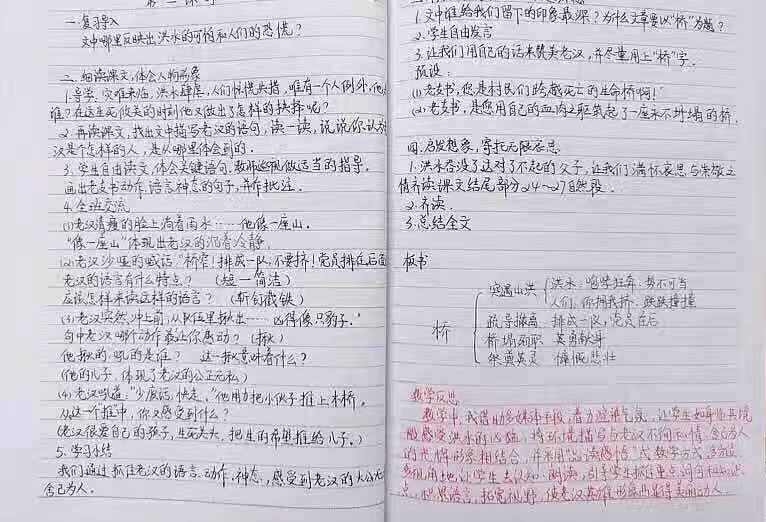 第二课时
一.复习导入
文中哪里反映出洪水的可怕和人们的恐慌?
二.细读课文,体会人物形象
1.导学:灾难来临,洪水肆虐,人们惊慌失措,唯有一个人例外,他是
谁?在这生死攸关的时刻他又做出了怎样的抉择呢?
2.再读课文,找出文中描写老汉的语句,读一读,说说你认为
汉是个怎样的人,是从哪里体会到的.
3.学生自由读文,体会关键语句,教师巡视做适当的指导.
画出老支书动作、语言、神态的句子,并作批注.
4.全班交流
(1)老汉清瘦的脸上淌着雨水……他像一座山.
"像一座山"体现出老汉的沉着冷静,
(2)老汉沙哑的喊话"桥窄!排成一队,不要挤!党员排在后面
老汉的语言有什么特点?(短一简洁)
应该怎样来读这样的语言?(斩钉截铁)
(3)老汉突然冲上前,从队伍里揪出……凶得像只豹子."
句中老汉哪个动作最让你感动?(揪)
他揪的、吼的是谁? 这一揪意味着什么?
(他的儿子,体现了老汉的公正无私)
(4)老汉吼道:"少废话,快走."他用力把小伙子推上木桥.
从这一个推中,你又感受到什么?
(老汉很爱自己的孩子,生死关头,把生的希望推给儿子.)
5.学习小结
我们通过抓住老汉的语言、动作、神态,感受到老汉的大公无
舍己为人.
1.文中谁给我们留下的印象最深?为什么文章要以"桥"为题?
2.学生自由发言
3.让我们用自己的话来赞美老汉,并尽量用上"桥"字.
预设:
(1)老支书,您是村民们跨越死亡的生命桥啊!
(2)老支书,是您用自己的血肉之躯筑起了一座永不垮塌的桥.
四.启发想象,寄托无限哀思
1.洪水吞没了这对了不起的父子,让我们满怀哀思与崇敬之
情齐读课文结尾部分24~27自然段.
2.齐读.
3.总结全文
板书
桥
突遇山洪
洪水:咆哮狂奔 势不可当
人们:你拥我挤 跌跌撞撞
疏导撤离 排成一队,党员在后
桥塌殉职 英勇献身
祭奠英灵 悼惋悲壮
教学反思
教学中,我借助多媒体手段,着力渲染气氛,让学生如临其境
地感受洪水的凶猛,将环境描写与老汉不徇私情、舍己为人
的光辉形象相结合,并采用"以读感悟"式教学方式,
地让学生去认知、朗读,引导学生抓住重点词句
点,积累语言,拓宽视野,使老汉英雄形象更显得美丽动人.